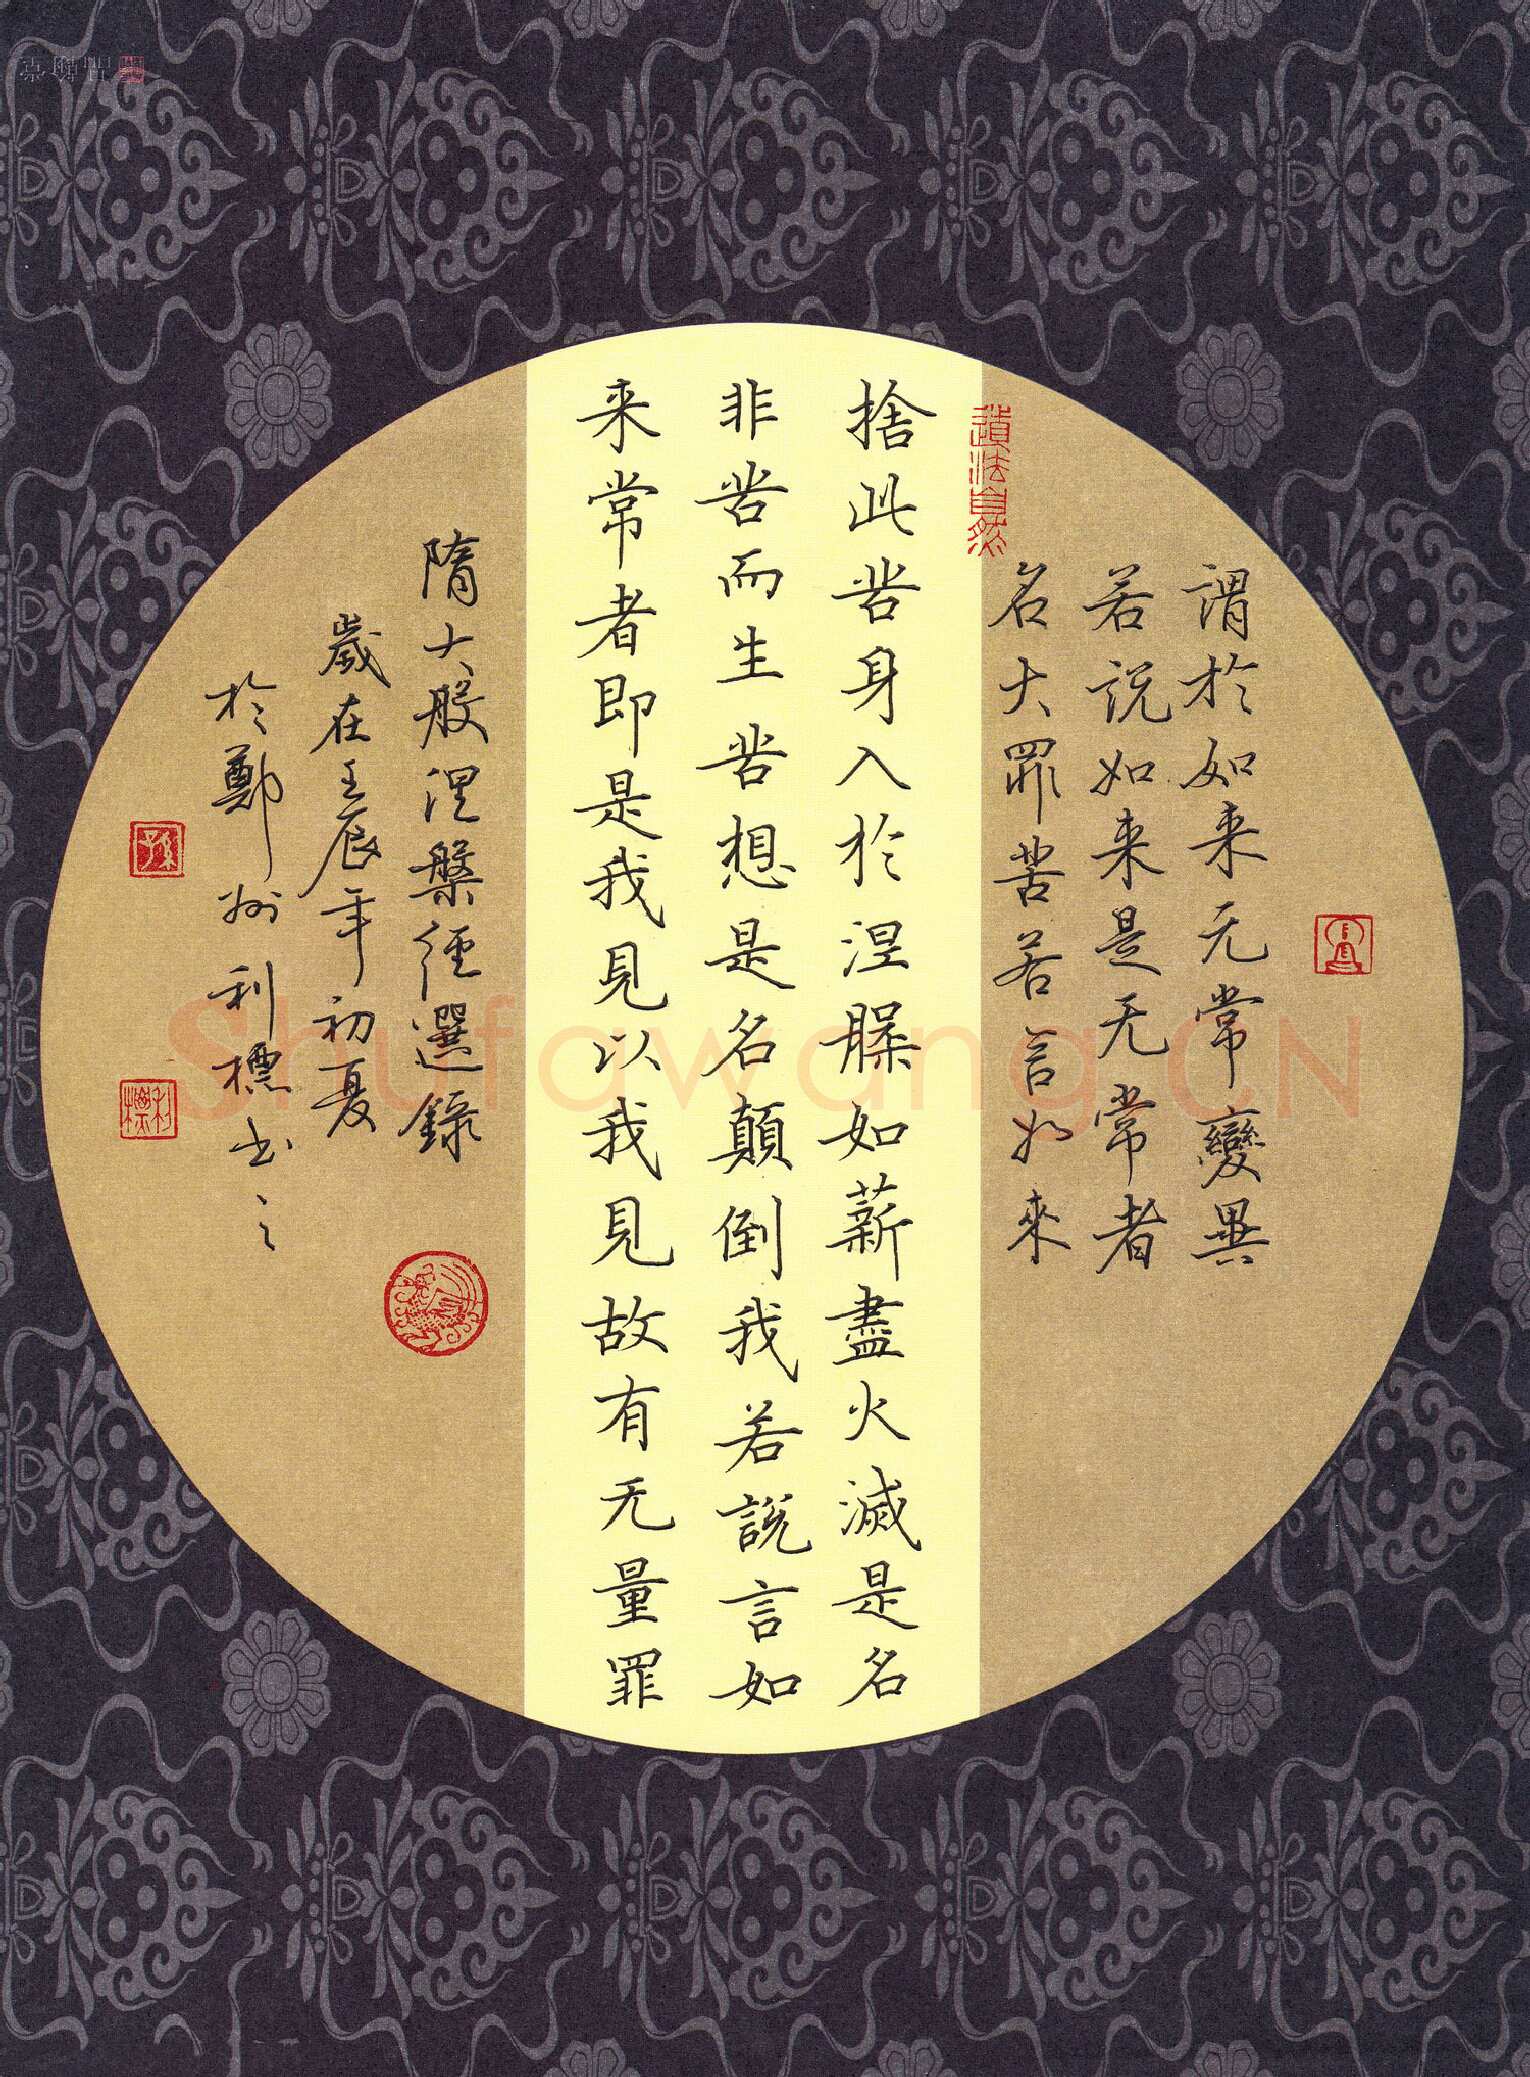 謂於如来无常變異
若說如来是无常者
名大罪苦若言如来
道法自然
捨此苦身入於涅槃如薪盡火滅是名
非苦而生苦想是名顛倒我若說言如
来常者即是我見以我見故有无量罪
隋大般涅槃經選錄
歲在壬辰年初夏
於鄭州利標書之
孫
利標
Shufawang.CN